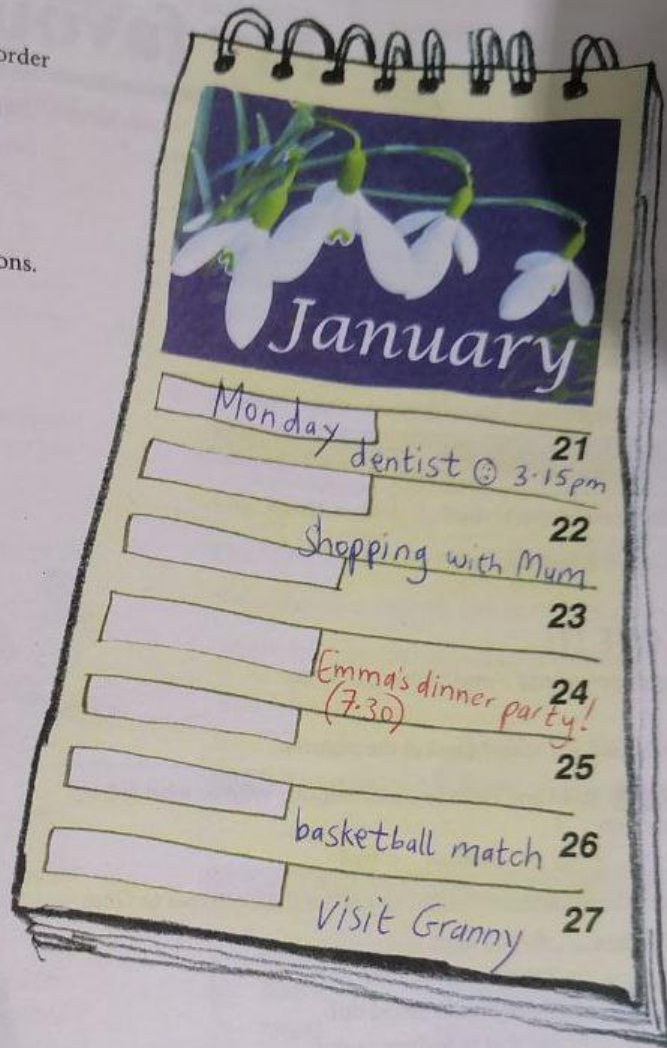 order
ons.
January
Monday
21
dentist @ 3.15pm
22
Shopping with Mum
23
Emma's dinner party!
24
(7.30)
25
basketball match 26
Visit Granny 27